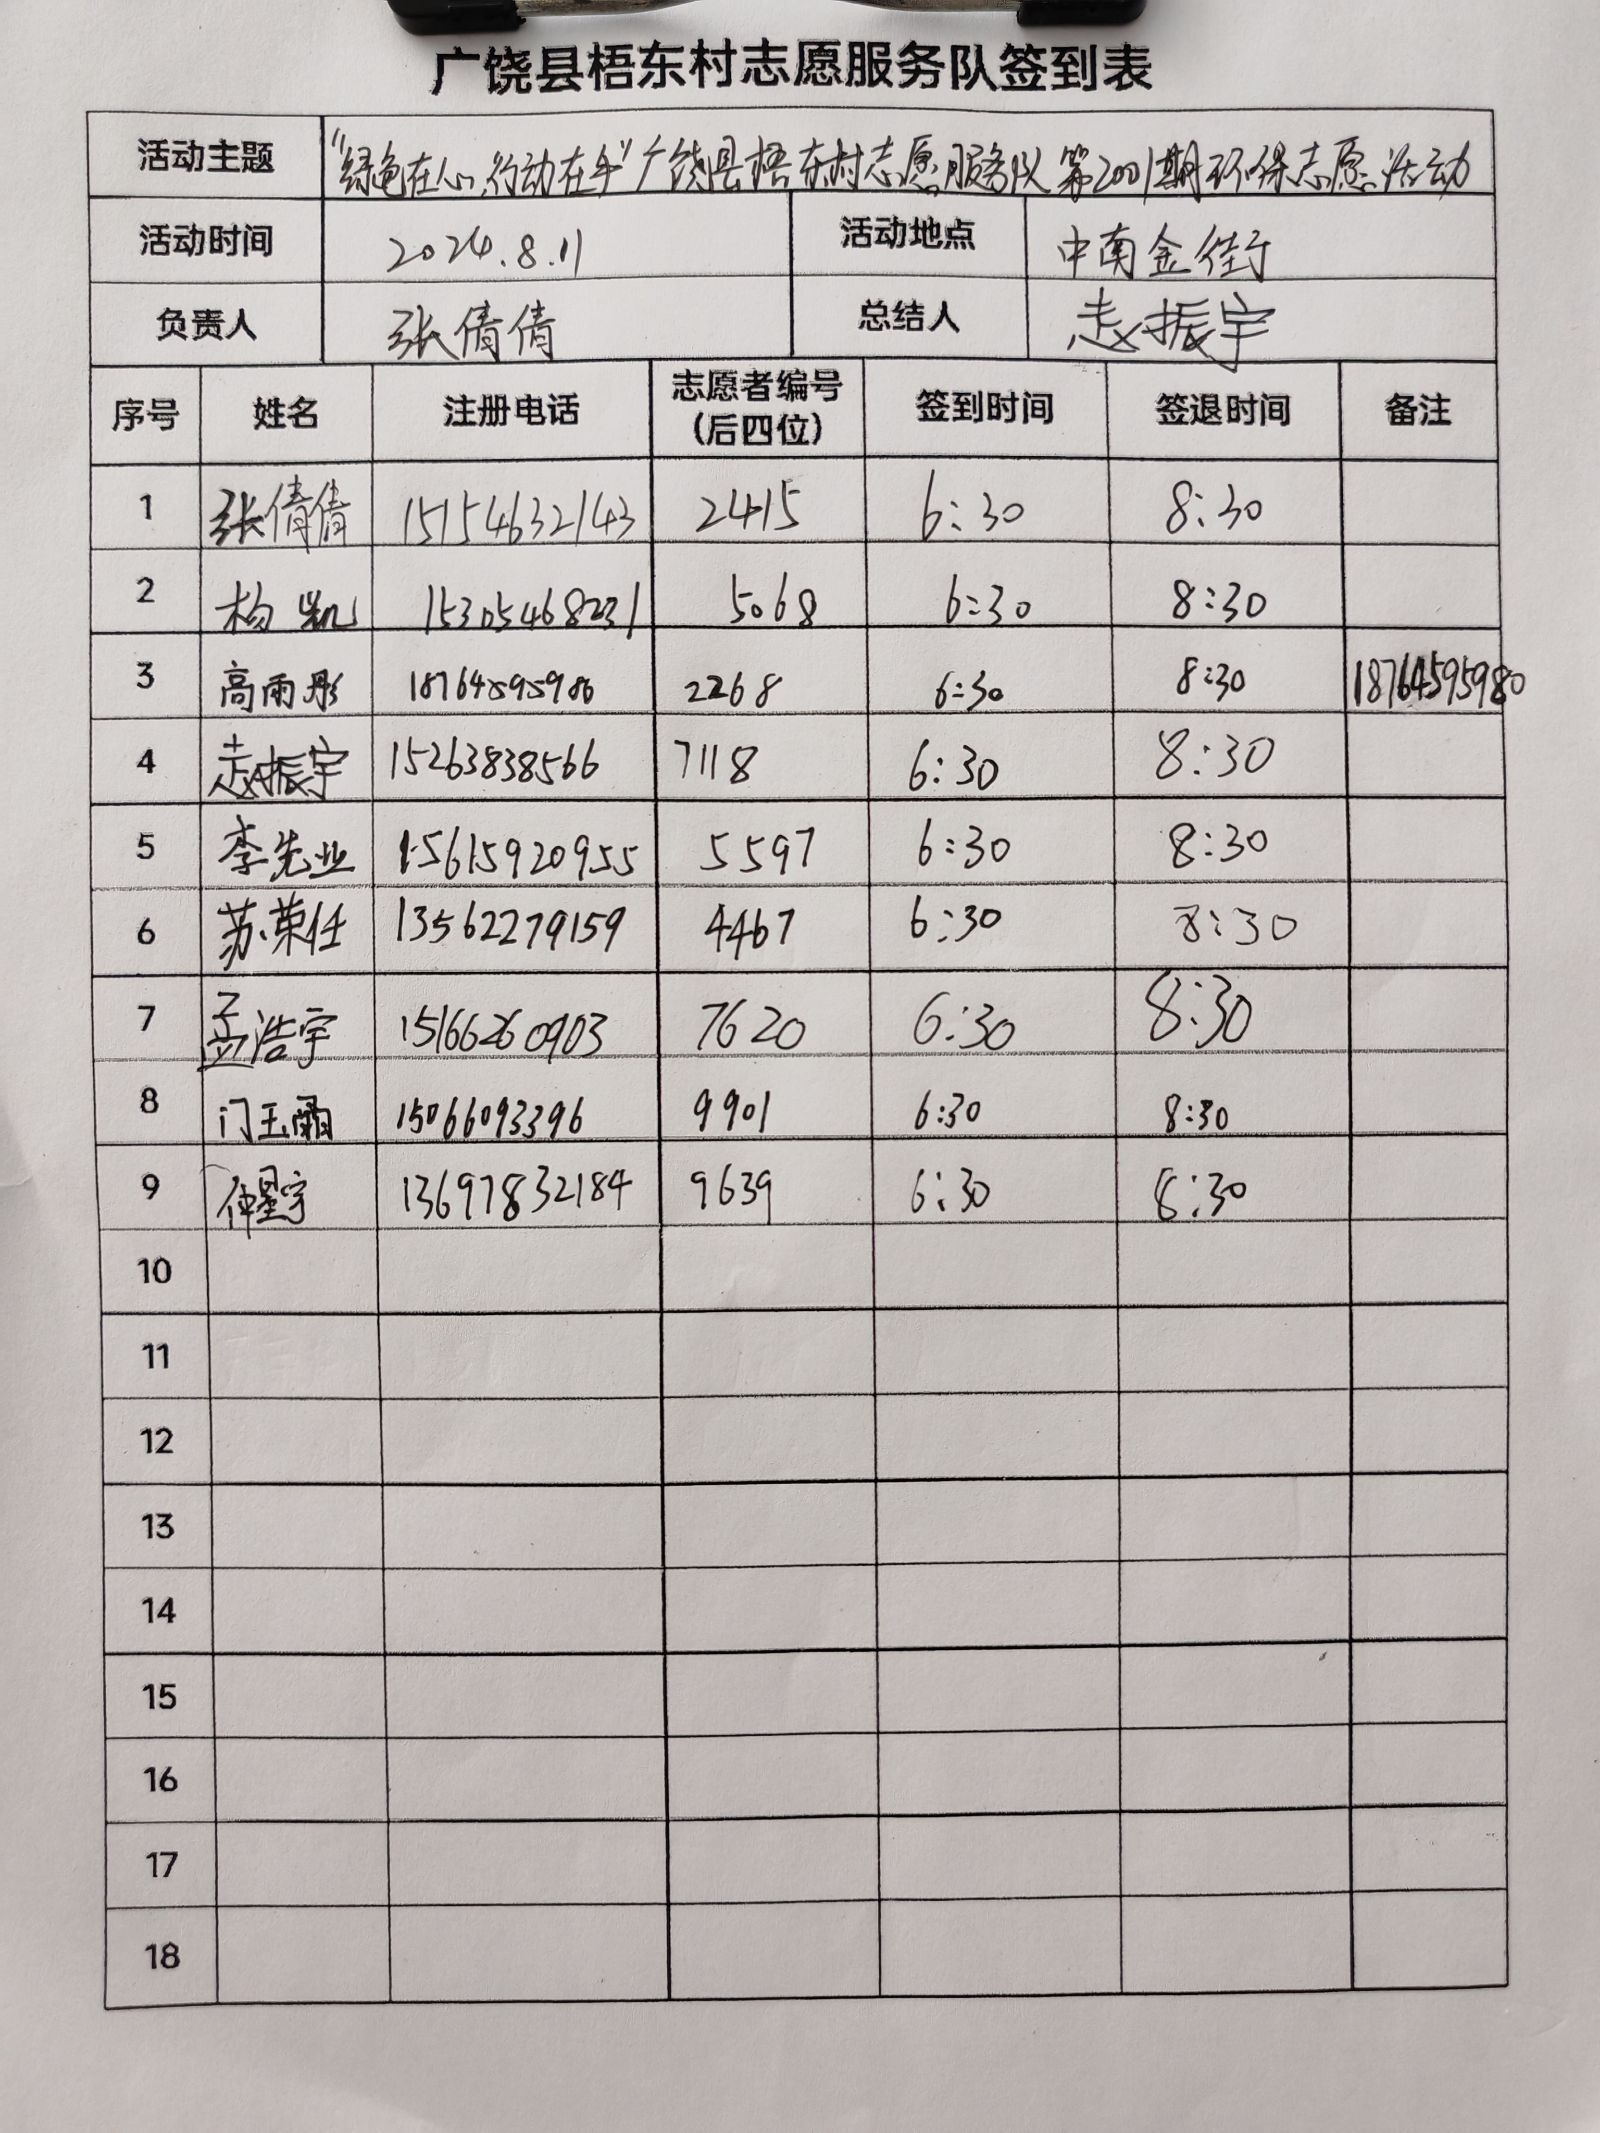 广饶县梧东村志愿服务队签到表
活动主题 "绿色在心,行动在手"广饶县梧东村志愿服务队第2001期环保志愿活动
活动时间 2024.8.11 活动地点 中南金街
负责人 张倩倩 总结人 赵振宇
序号 姓名 注册电话 志愿者编号(后四位) 签到时间 签退时间 备注
1 张倩倩 15154632143 2415 6:30 8:30
2 杨凯 15305468231 5068 6:30 8:30
3 高雨彤 18764595980 2268 6:30 8:30 18764595980
4 赵振宇 15263838566 7118 6:30 8:30
5 李先业 15615920955 5597 6:30 8:30
6 苏荣任 13562279159 4467 6:30 8:30
7 孟浩宇 15166260903 7620 6:30 8:30
8 门玉 15066093396 9901 6:30 8:30
9 仲星宇 13697832184 9639 6:30 8:30
10
11
12
13
14
15
16
17
18